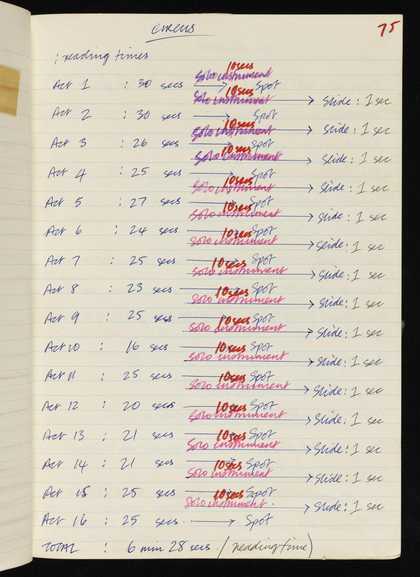 75
CIRCUS
: reading times
10 secs
solo instrument
Act 1 : 30 secs → Spot
10 secs
solo instrument → Slide : 1 sec
Act 2 : 30 secs → Spot
10 secs
solo instrument → Slide : 1 sec
Act 3 : 26 secs → Spot
10 secs
solo instrument → Slide : 1 sec
Act 4 : 25 secs → Spot
10 secs
solo instrument → Slide : 1 sec
Act 5 : 27 secs → Spot
10 secs
solo instrument → Slide : 1 sec
Act 6 : 24 secs → Spot
10 secs
solo instrument → Slide : 1 sec
Act 7 : 25 secs → Spot
10 secs
solo instrument → Slide : 1 sec
Act 8 : 23 secs → Spot
10 secs
solo instrument → Slide : 1 sec
Act 9 : 25 secs → Spot
10 secs
solo instrument → Slide : 1 sec
Act 10 : 16 secs → Spot
10 secs
solo instrument → Slide : 1 sec
Act 11 : 25 secs → Spot
10 secs
solo instrument → Slide : 1 sec
Act 12 : 20 secs → Spot
10 secs
solo instrument → Slide : 1 sec
Act 13 : 21 secs → Spot
10 secs
solo instrument → Slide : 1 sec
Act 14 : 21 secs → Spot
10 secs
solo instrument → Slide : 1 sec
Act 15 : 25 secs → Spot
10 secs
solo instrument → Slide : 1 sec
Act 16 : 25 secs → Spot
TOTAL : 6 min 28 secs (reading time)